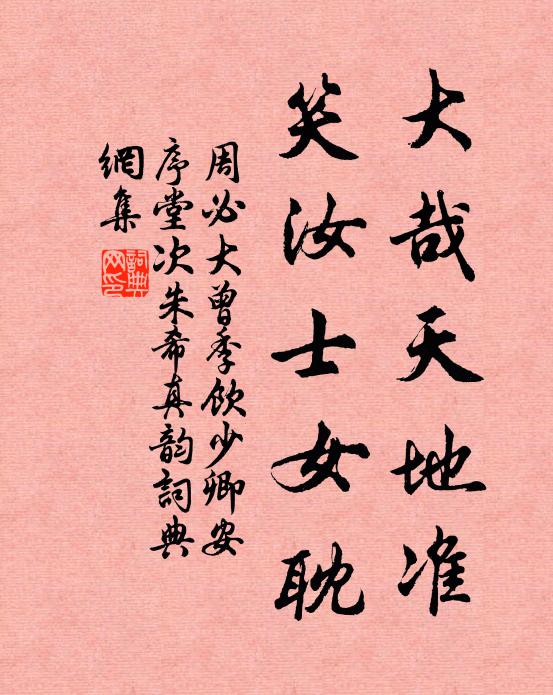 大哉天地准
笑汝士女耽
周必大曾季飲少卿安
序堂次朱希真韵詞典
網集
詞典網印